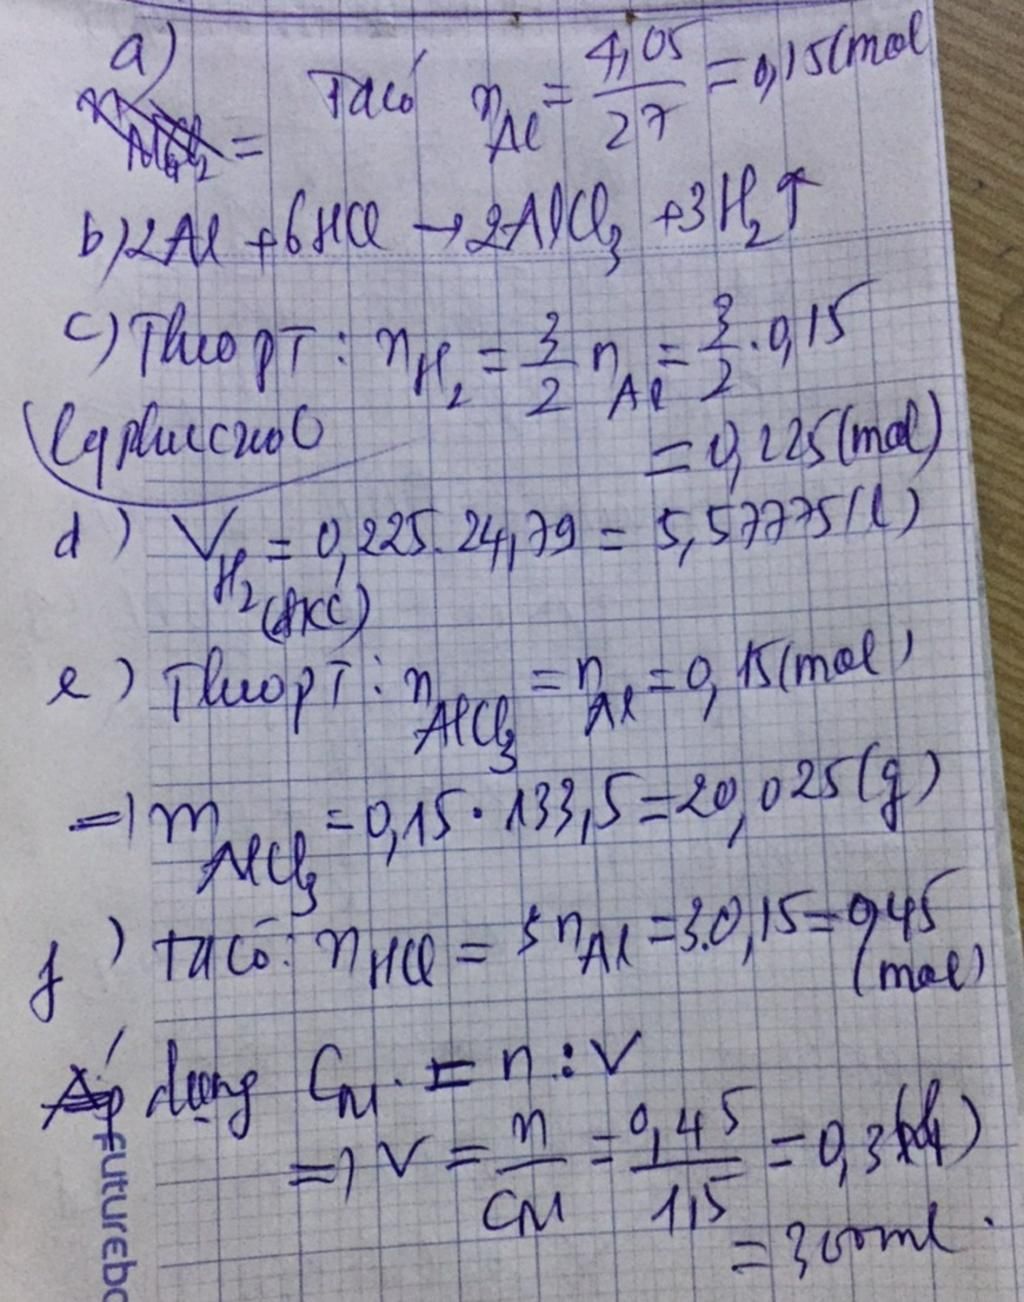 a)
Ta có n_Al = 4,05/27 = 0,15(mol
b) 2Al + 6HCl → 2AlCl₃ + 3H₂↑
c) Theo PT: n_H₂ = 3/2 n_Al = 3/2 . 0,15
= 0,225(mol)
d) V_H₂(đkc) = 0,225. 24,79 = 5,57775(l)
e) Theo PT: n_AlCl₃ = n_Al = 0,15(mol)
=) m_AlCl₃ = 0,15 . 133,5 = 20,025(g)
f) ta có: n_HCl = 3n_Al = 3.0,15 = 0,45
(mol)
Áp dụng C_M = n : V
=) V = n/C_M = 0,45/1,5 = 0,3(l)
= 300ml.
futurebo